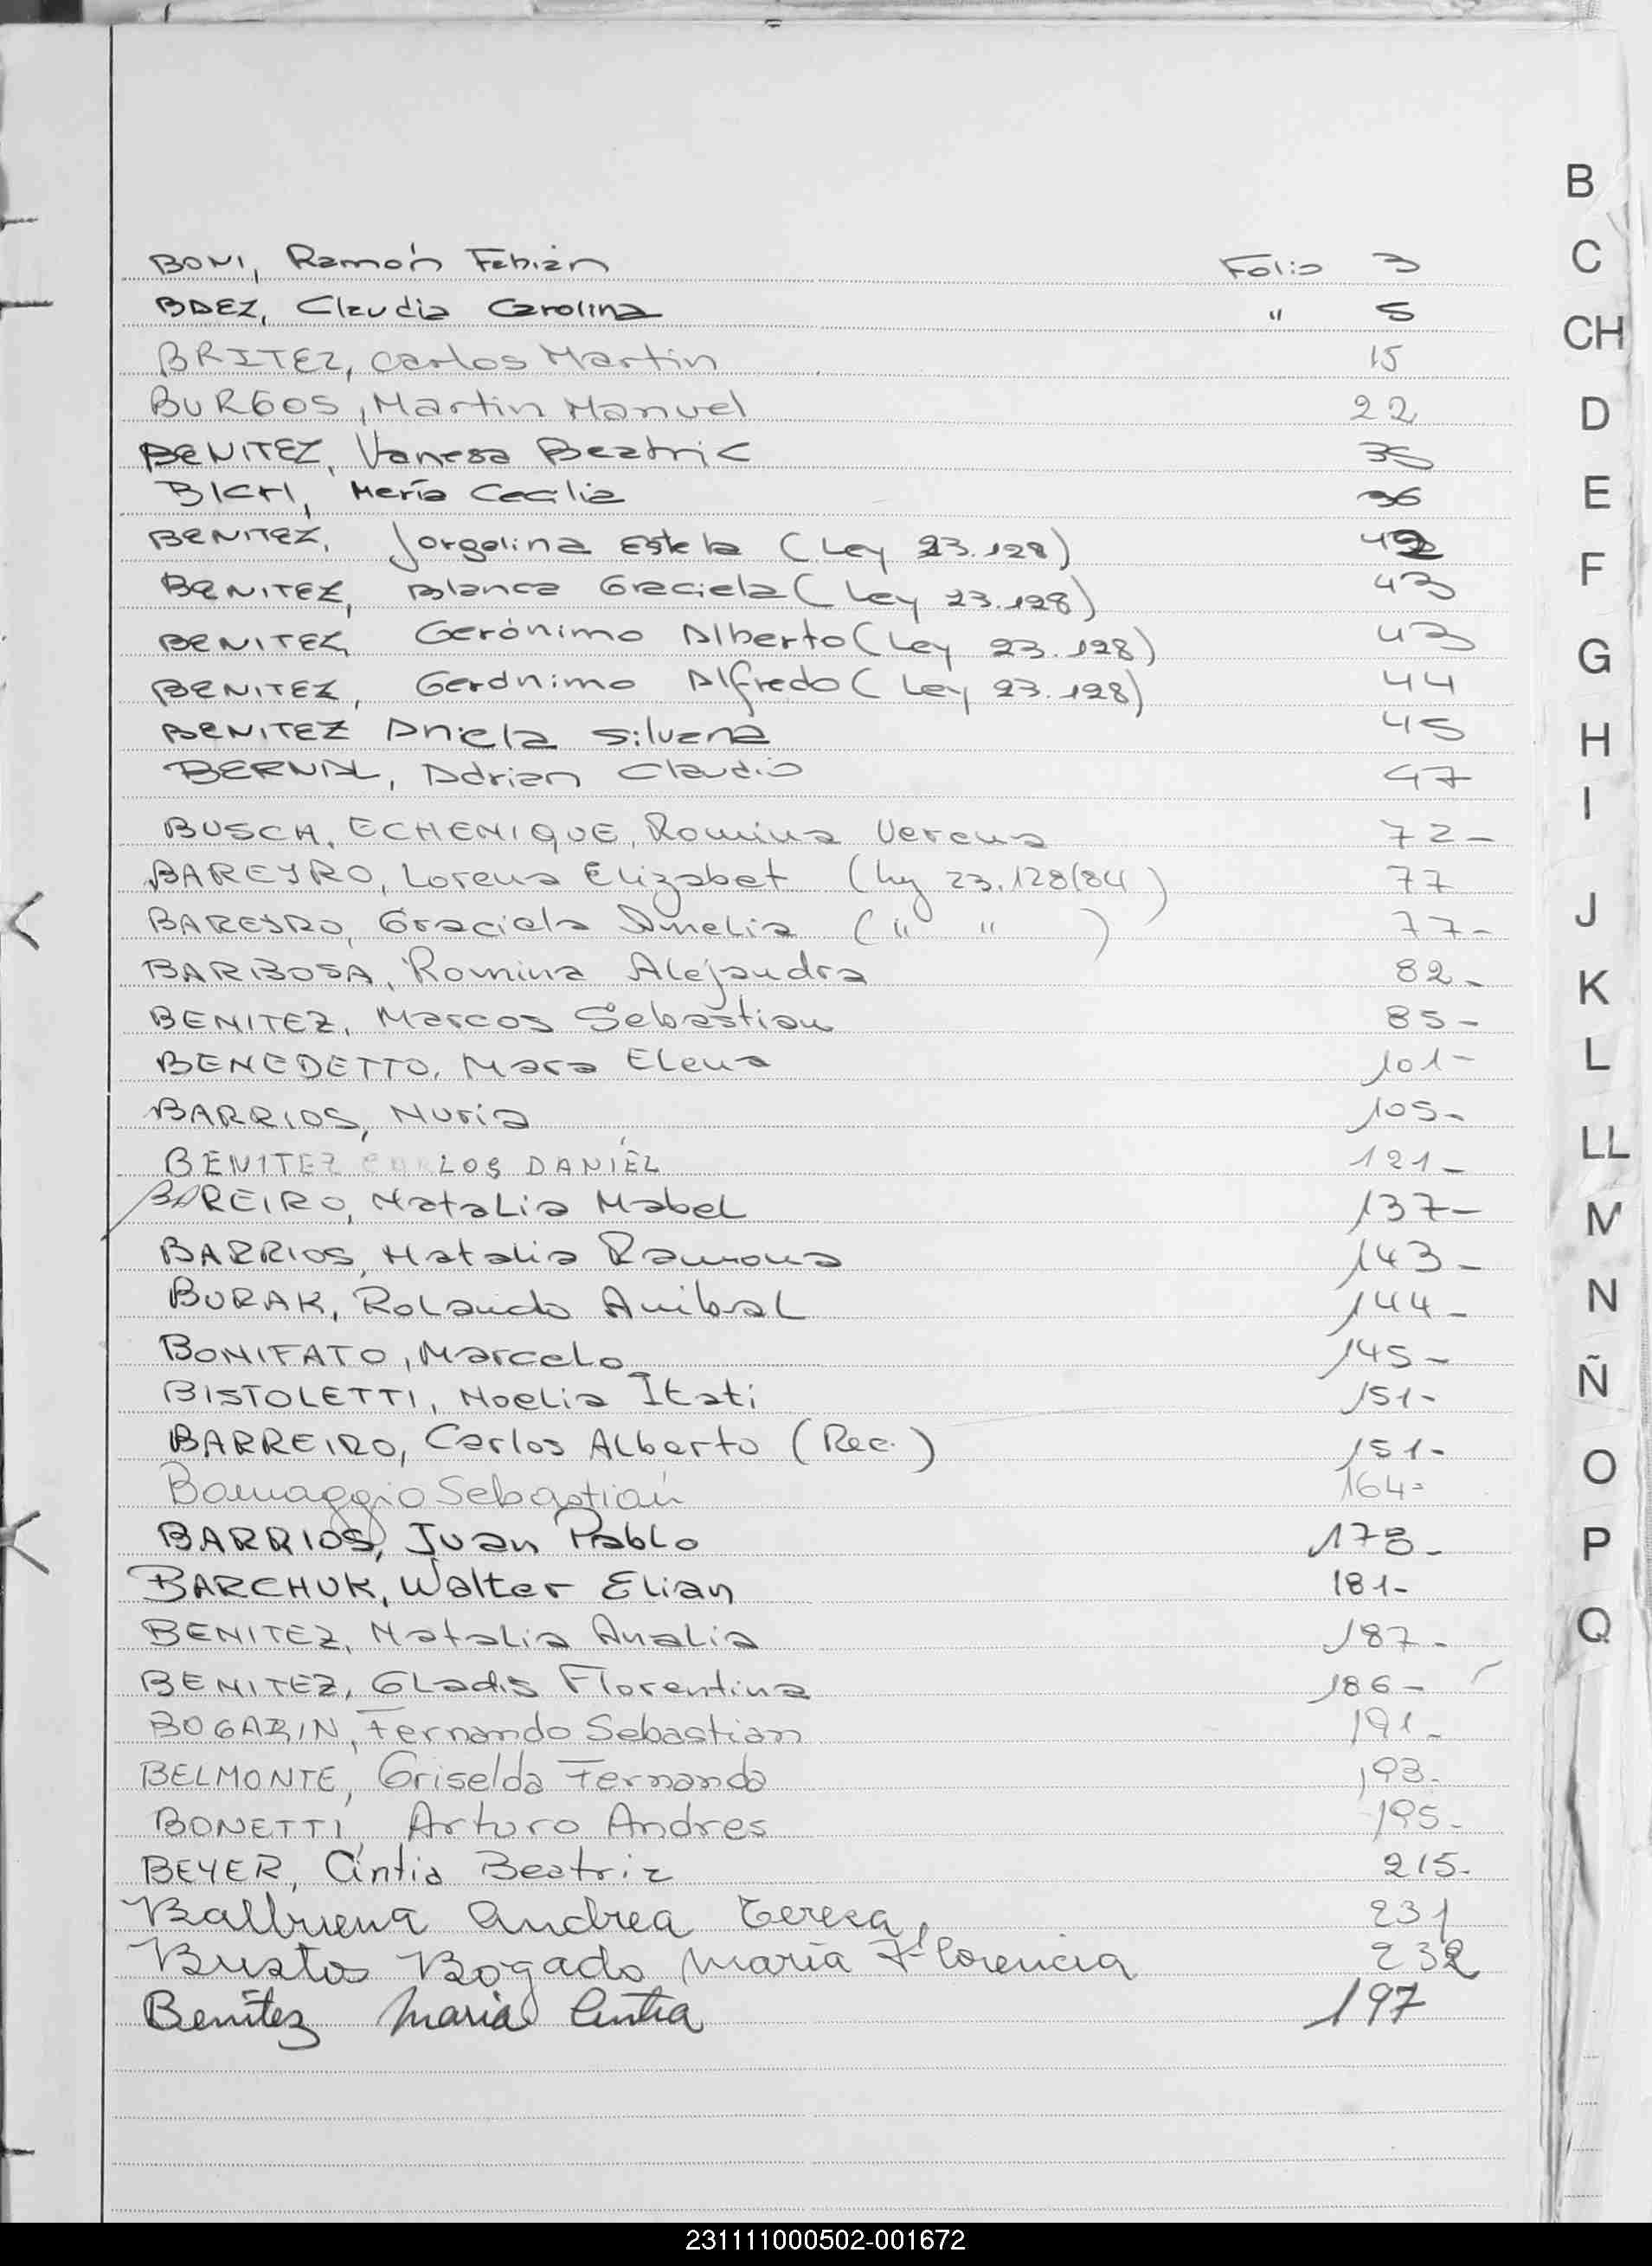 BONI, Ramón Fabián Folio 3
BAEZ, Claudia Carolina " 5
BRITEZ, Carlos Martin 15
BURGOS, Martin Manuel 22
BENITEZ, Vanesa Beatriz 35
BICHI, María Cecilia 36
BENITEZ, Jorgelina Estela (Ley 23.128) 42
BENITEZ, Blanca Graciela (Ley 23.128) 43
BENITEZ, Gerónimo Alberto (Ley 23.128) 43
BENITEZ, Gerónimo Alfredo (Ley 23.128) 44
BENITEZ Ariela Silvana 45
BERNAL, Adrian Claudio 47
BUSCH, ECHENIQUE, Romina Verena 72-
BAREYRO, Lorena Elizabet (Ley 23.128/84) 77
BAREYRO, Graciela Amelia (" ") 77-
BARBOSA, Romina Alejandra 82-
BENITEZ, Marcos Sebastian 85-
BENEDETTO, Mara Elena 101-
BARRIOS, Nuria 105-
BENITEZ CARLOS DANIEL 121-
BAREIRO, Natalia Mabel 137-
BARRIOS, Natalia Ramona 143-
BURAK, Rolando Anibal 144-
BONIFATO, Marcelo 145-
BISTOLETTI, Noelia Itati 151-
BARREIRO, Carlos Alberto (Rec.) 151-
Sebastián 164-
BARRIOS, Juan Pablo 178-
BARCHUK, Walter Elian 181-
BENITEZ, Natalia Analia 187-
BENITEZ, Gladis Florentina 186-
BOGARIN, Fernando Sebastian 191-
BELMONTE, Griselda Fernanda 193-
BONETTI, Arturo Andres 195-
BEYER, Cintia Beatriz 215-
Balbuena Andrea Teresa 231
Bustos Bogado María Florencia 232
Benítez Maria Cintia 197
B
C
CH
D
E
F
G
H
I
J
K
L
LL
M
N
Ñ
O
P
Q
231111000502-001672